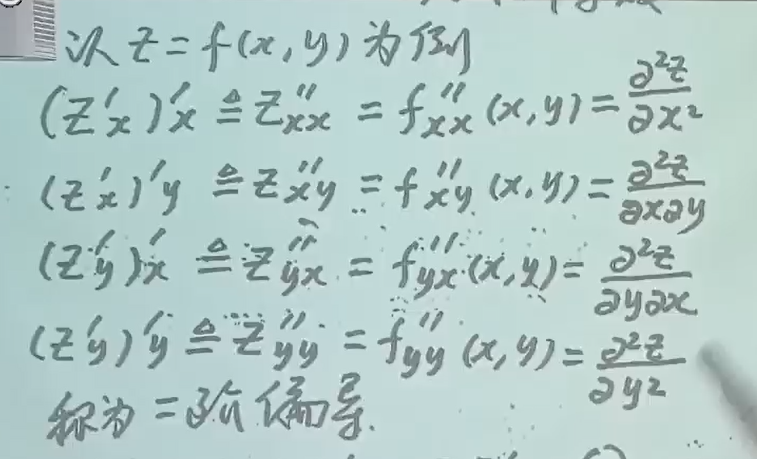 以 z = f(x, y) 为例
(z'x)'x ≜ z''xx = f''xx (x, y) = ∂²z/∂x²
(z'x)'y ≜ z''xy = f''xy (x, y) = ∂²z/∂x∂y
(z'y)'x ≜ z''yx = f''yx (x, y) = ∂²z/∂y∂x
(z'y)'y ≜ z''yy = f''yy (x, y) = ∂²z/∂y²
称为二阶偏导.